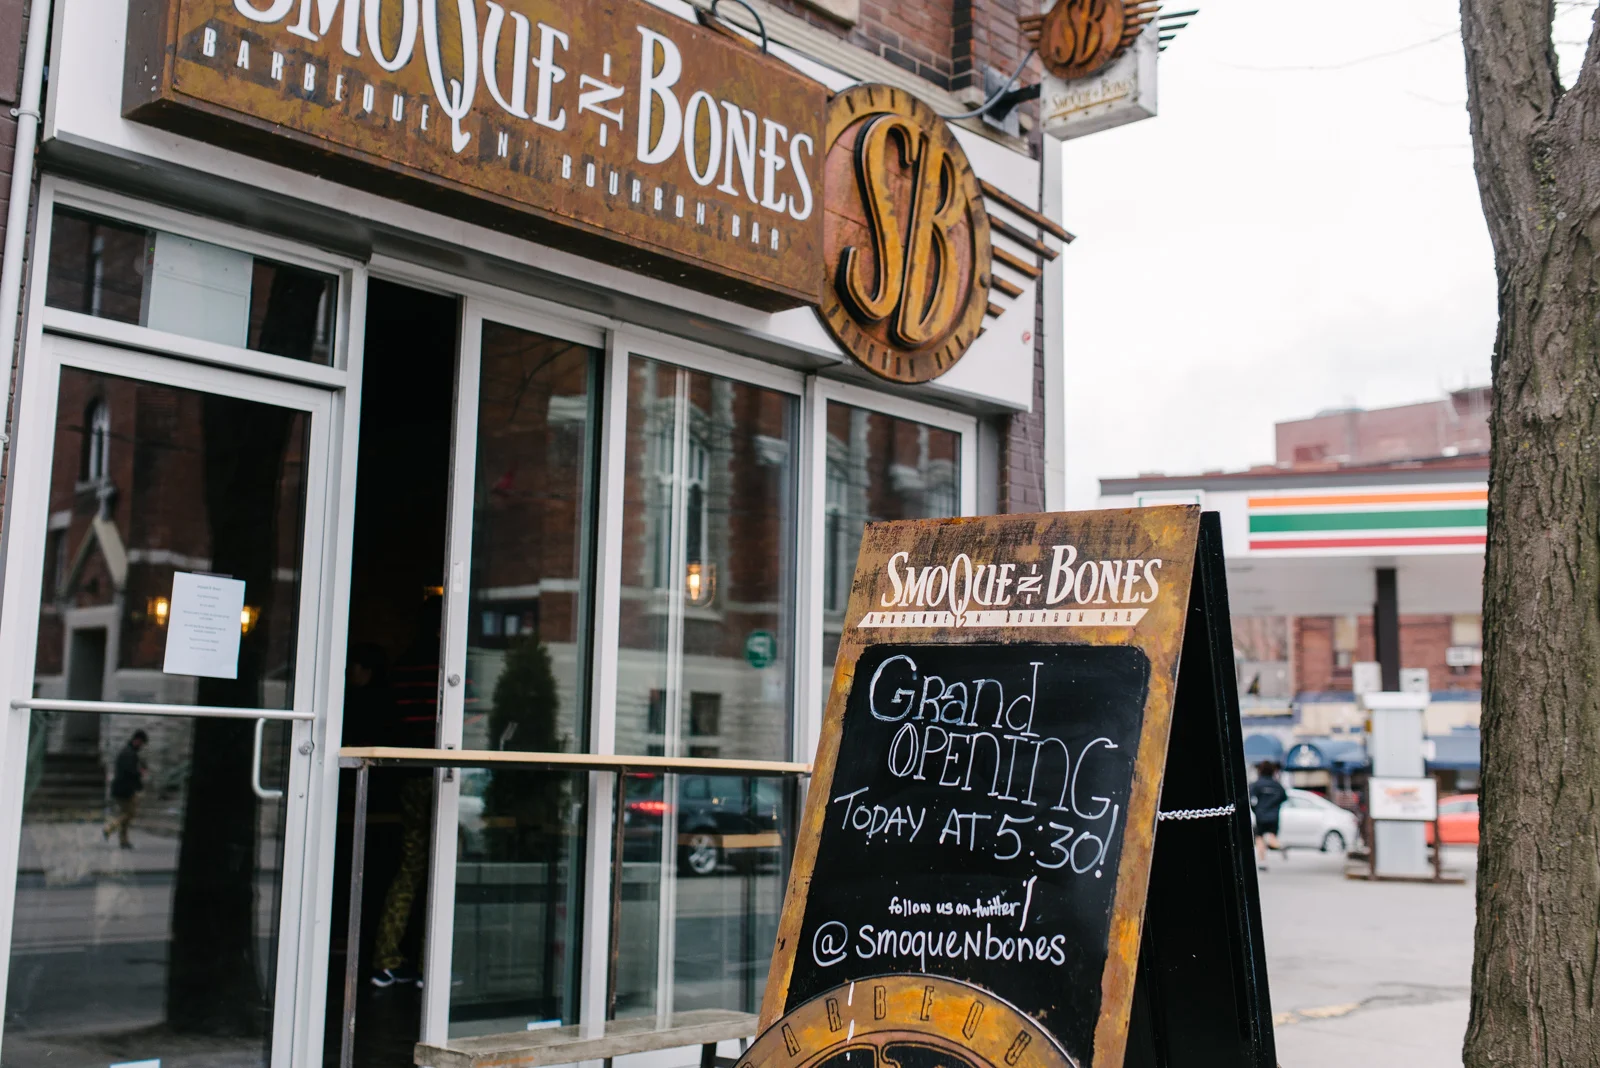 SMOQUE N BONES
BARBEQUE N' BOURBON BAR
SB
BOURBON BAR
SB
SMOQUE N BONES
SMOQUE N BONES
BARBEQUE N' BOURBON BAR
GRand
OPENING
TODAY AT 5:30!
follow us on twitter
@ SmoqueNbones
BARBEQU